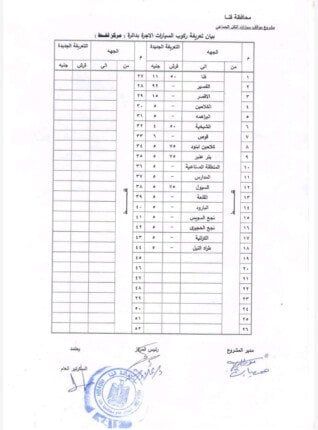 محافظة قنا
مشروع مواقف سيارات النقل الجماعي
بيان تعريفة ركوب السيارات الاجرة بدائرة : مركز قفط :
م الجهه التعريفة الجديدة م الجهه التعريفة الجديدة
من الى قرش جنيه من الى قرش جنيه
١ قفط قنا ٥٠ ١١ ٢٧ قفط
٢ القصير – ٢٨
٣ الاقصر – ١٥ ٢٩
٤ الكلاحين – ٥ ٣٠
٥ البراهمه – ٥ ٣١
٦ الشيخية ٥٠ ٤ ٣٢
٧ قوص – ٣٣
٨ كلاحين ابنود ٧٥ ٥ ٣٤
٩ بئر عنبر ٧٥ ٥ ٣٥
١٠ المنطقة الصناعية – ٥ ٣٦
١١ المدارس – ٥ ٣٧
١٢ السيول ٧٥ ٥ ٣٨
١٣ القلعة – ٥ ٣٩
١٤ البارود – ٥ ٤٠
١٥ نجع – ٥ ٤١
١٦ نجع الحجيرى – ٥ ٤٢
١٧ – ٥ ٤٣
١٨ ظراد النيل – ٥ ٤٤
١٩ ٤٥
٢٠ ٤٦
٢١ ٤٧
٢٢ ٤٨
٢٣ ٤٩
٢٤ ٥٠
٢٥ ٥١
٢٦ ٥٢
مدير المشروع رئيس المركز يعتمد
السكرتير العام